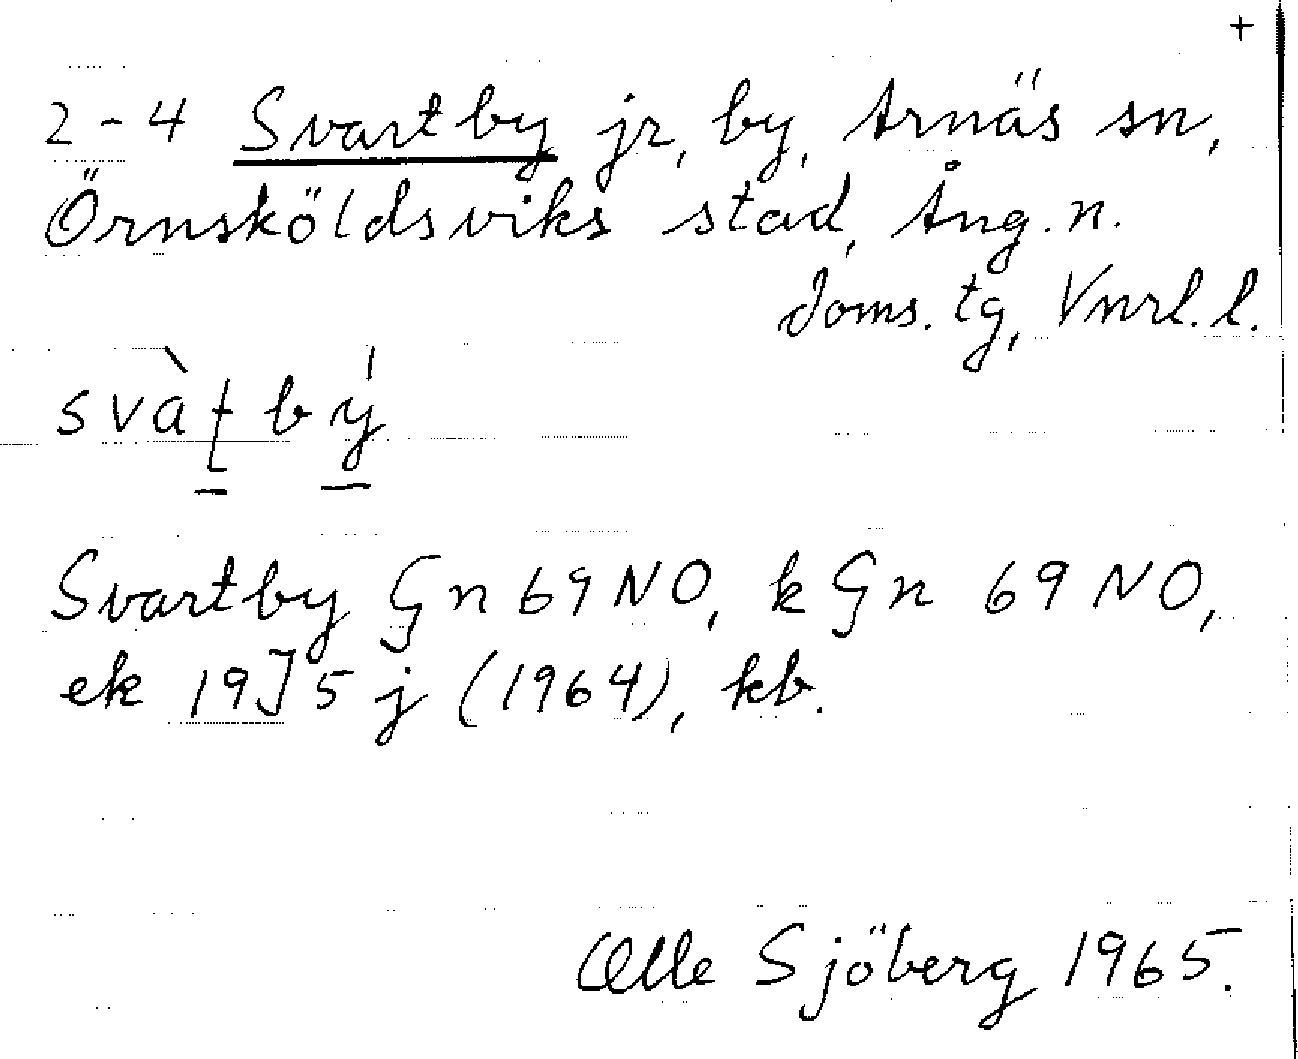 +
2-4 Svartby jr, by, Arnäs sn,
Örnsköldsviks stad, Ång. n.
doms. tg, Vnrl. l.
svàʈbý
Svartby Gn 69 NO, k Gn 69 NO,
ek 19J5j (1964), kb.
Olle Sjöberg 1965.